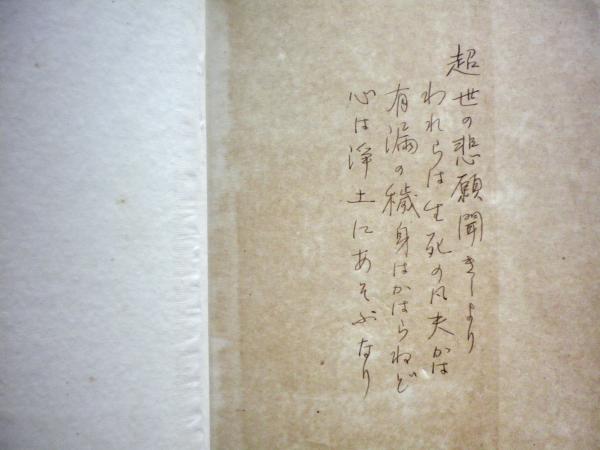 超世の悲願聞きしより
われらは生死の凡夫かは
有漏の穢身はかはらねど
心は浄土にあそぶなり